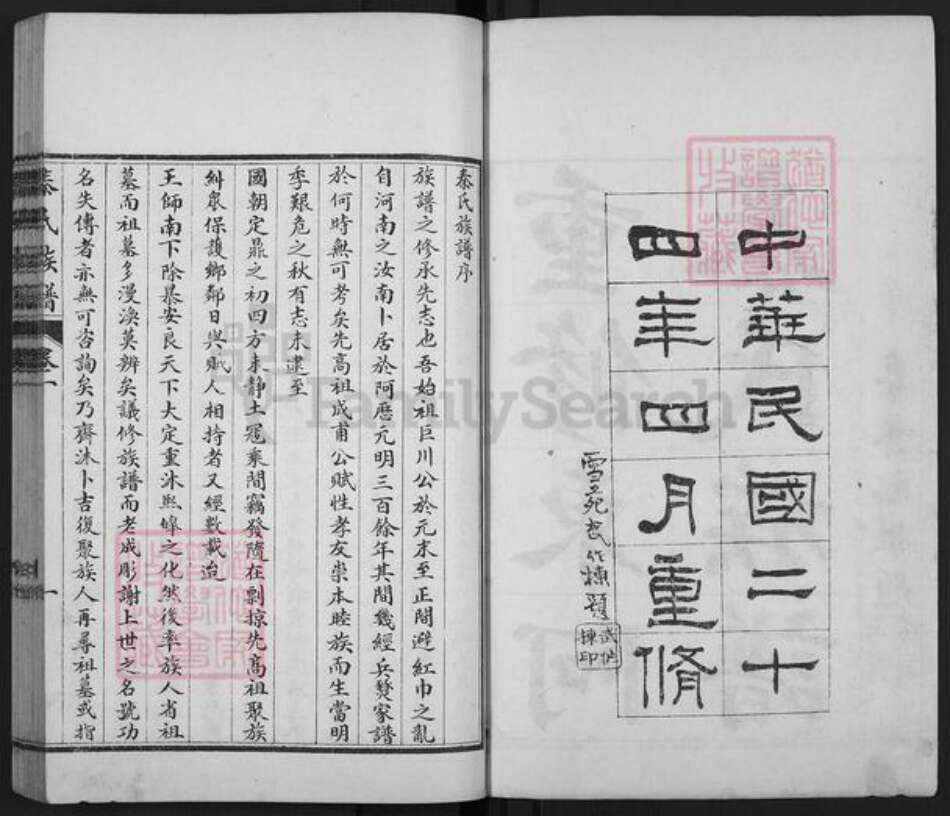 中華民國二十
四年四月重脩
雪苑武作棟題
武作棟印
秦氏族譜序
族譜之修承先志也吾始祖巨川公於元末至正間避紅巾之亂
自河南之汝南卜居於阿厝元明三百餘年其間幾經兵燹家譜
於何時無可考矣先高祖成甫公賦性孝友崇本睦族而生當明
季艱危之秋有志未逮至
國朝定鼎之初四方未靜土冦乘間竊發隨在剽掠先高祖聚族
糾眾保護鄉鄰日與賊人相持者又經數載迨
王師南下除暴安良天下大定重沐熙皞之化然後率族人省祖
墓而祖墓多漫漶莫辨矣議修族譜而老成彫謝上世之名號功
名失傳者亦無可咨詢矣乃齋沐卜吉復聚族人再尋祖墓或指
秦氏族譜 卷一 一
FamilySearch